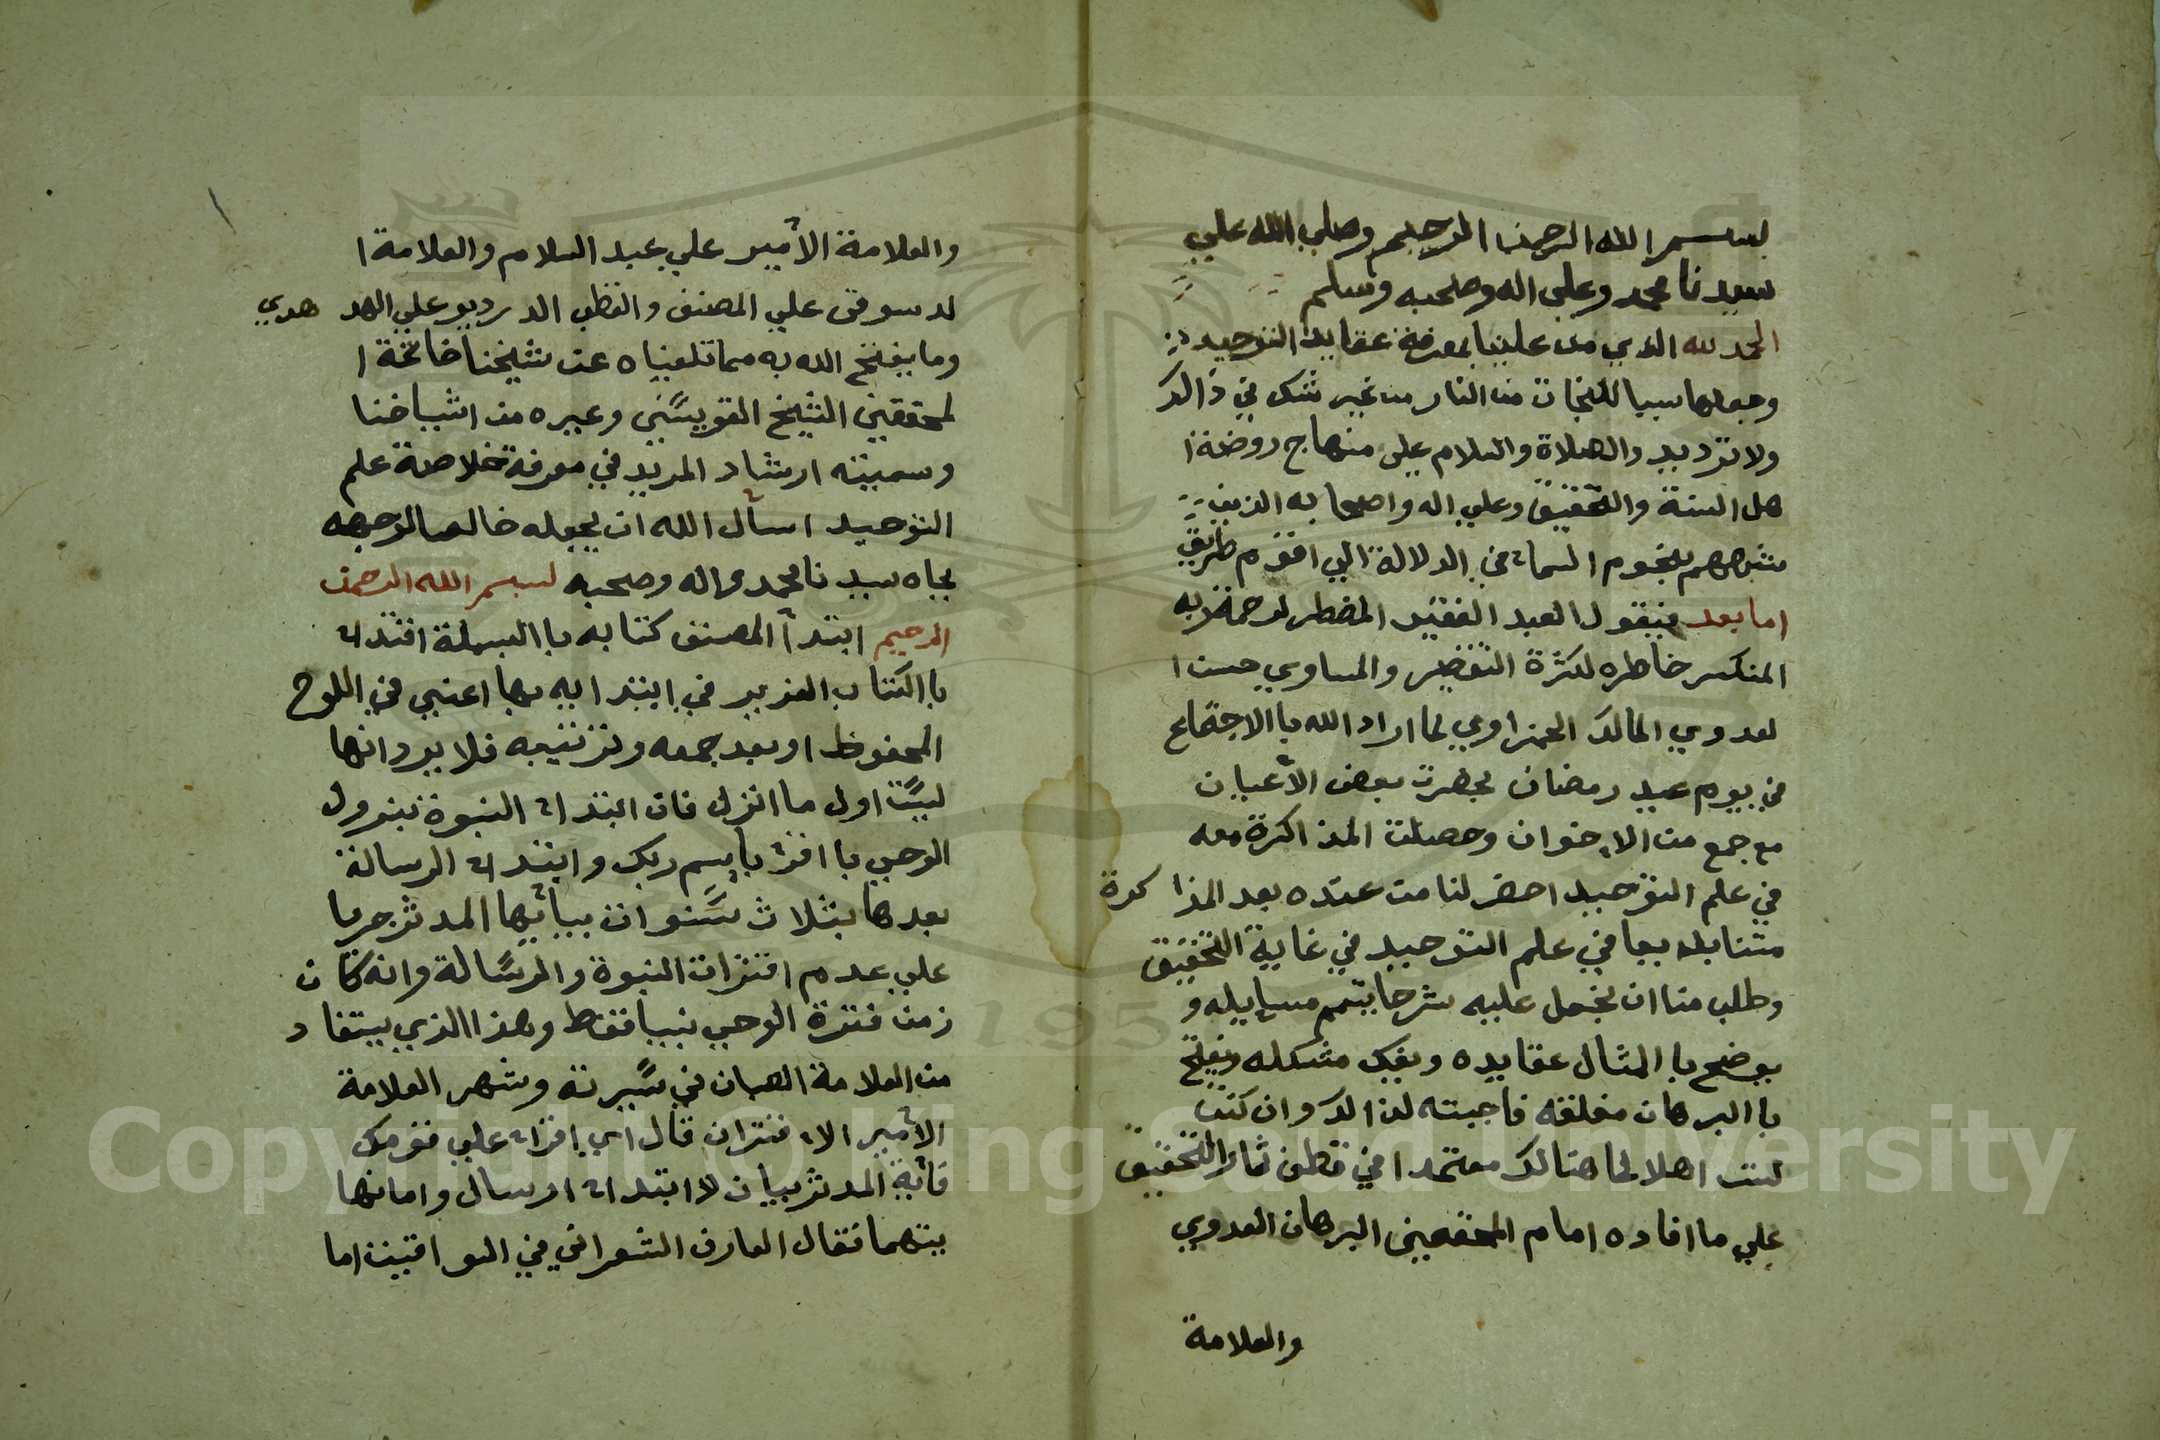 بسم الله الرحمن الرحيم وصلي الله علي
سيدنا محمد وعلي اله وصحبه وسلم
الحمد لله الذي من علينا بمعرفة عقايد التوحيد
وجعلها سببا للنجات من النار من غير شك في ذالك
ولا ترديد والصلاة والسلام على منهاج روضة ا
هل السنة والتحقيق وعلي اله واصحابه الذين
شبههم بنجوم السماء في الدلالة الي اقوم طريق
اما بعد فيقول العبد الفقير المضطر لرحمة ربه
المنكسر خاطره لكثرة التقصير والمساوي حسن ا
لعدوي المالك الحمزاوي لما اراد الله باالاجتماع
في يوم عيد رمضان بحضرت بعض الأعيان
مع جمع من الاخوان وحصلت المذاكرة معه
في علم التوحيد احضر لنا من عنده بعد المذاكرة
متنا بديعا في علم التوحيد في غاية التحقيق
وطلب منا ان نجعل عليه شرحا يتمم مسايله و
يوضح باالمثال عقايده ويفك مشكله ويفتح
باالبرهان مغلقه فاجبته لذالك وان كنت
لست اهلا لما هنالك معتمدا في قطف ثمار التحقيق
علي ما افاده امام المحققين البرهان العدوي
والعلامة
والعلامة الأمير علي عبد السلام والعلامة ا
لدسوقى علي المصنف والقطب الدردير علي الهدهدي
وما يفتح الله به مما تلقيناه عن شيخنا خاتمة ا
لمحققين الشيخ القويسني وغيره من اشياخنا
وسميته ارشاد المريد في معرفة خلاصة علم
التوحيد اسأل الله ان يجعله خالصا لوجهه
بجاه سيدنا محمد واله وصحبه بسم الله الرحمن
الرحيم ابتدأ المصنف كتابه باالبسملة اقتداء
باالكتاب العزيز في ابتدايه بها اعني في اللوح
المحفوظ او بعد جمعه وترتيبه فلا يرد انها
ليست اول ما انزل فان ابتداء النبوة بنزول
الوحي با اقرء بأسم ربك وابتداء الرسالة
بعدها بثلاث سنوات بيأيها المدثر جريا
علي عدم اقتران النبوة والرسالة وانه كان
زمن فترة الوحي نبيا فقط وهذا الذي يستفاد
من العلامة الصبان في سيرته وشهر العلامة
الأمير الاقتران قال أي إقراء علي قومك
فأية المدثر بيان لابتداء ارسال واما نها
يتهما فقال العارف الشعراني في اليواقيت اما